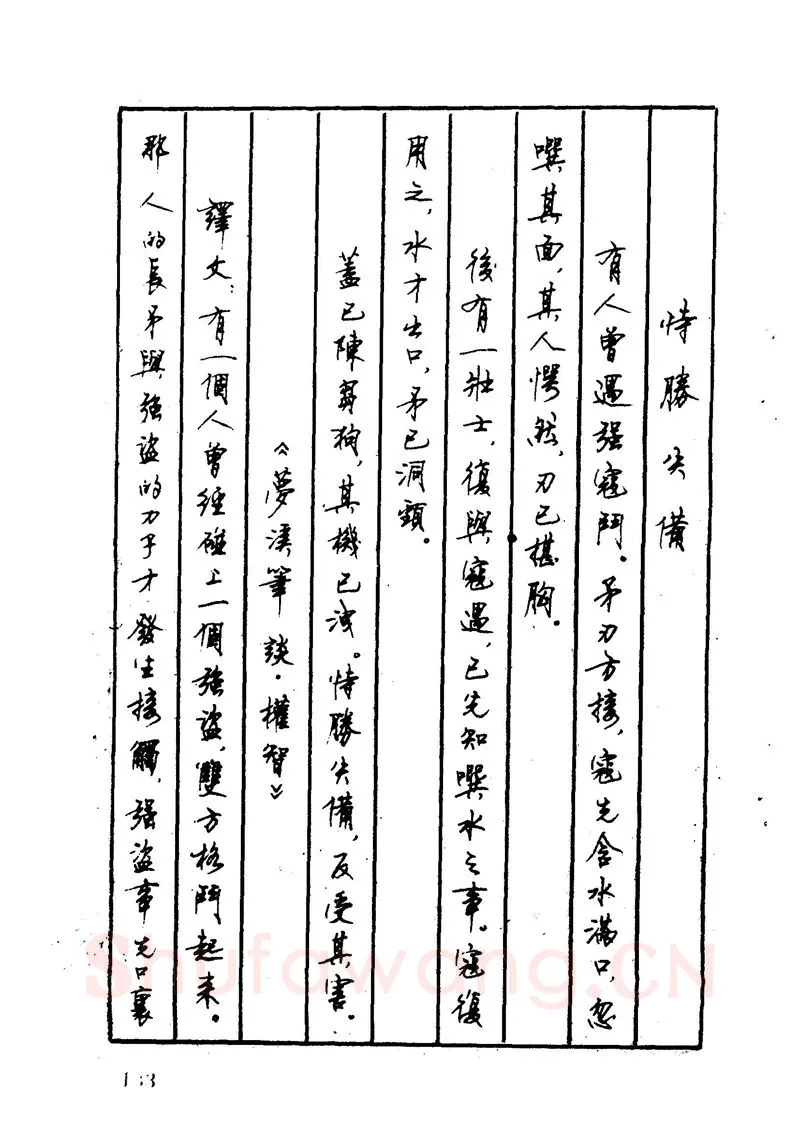 恃勝失備
有人曾遇强寇鬥。矛刃方接，寇先含水滿口，忽
噀其面，其人愕然，刃已揕胸。
後有一壯士，復與寇遇，已先知噀水之事。寇復
用之，水才出口，矛已洞頸。
蓋已陳芻狗，其機已洩。恃勝失備，反受其害。
《夢溪筆談·權智》
譯文：有一個人曾經碰上一個強盜，雙方格鬥起来。
那人的長矛與強盜的刀子才發生接觸，强盜事先口裏
13
Shufawang.CN